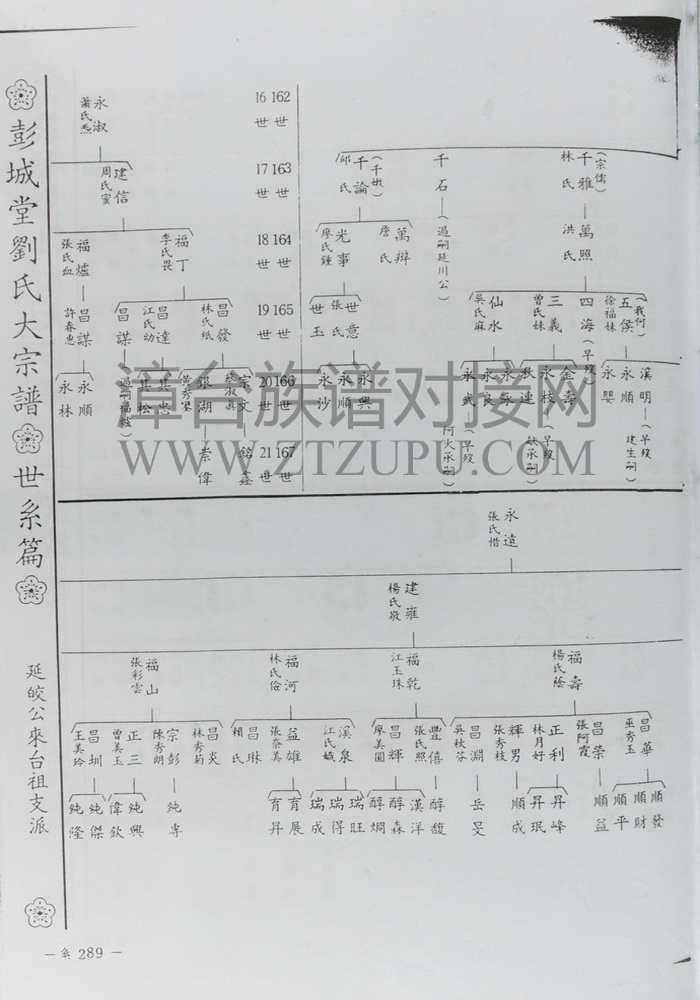 彭城堂劉氏大宗譜 世系篇
延皎公來台祖支派
162世 163世 164世 165世 166世 167世
16世 17世 18世 19世 20世 21世
(宗儒)
千雅 林氏
千石 (過嗣延川公)
(千嫩)
千論 邱氏
萬照 洪氏
萬辯 詹氏
光事 廖氏鍾
(我何)
五侯 徐福妹
四海 (早歿)
三義 曾氏妹
仙水 吳氏麻
世意 張氏
世玉
溪明 (早歿)
永順 建生嗣
永嬰
金壽
永枝 (早歿)
秋連
永良
永武
(早歿)
阿火承嗣
永興
永順
永沙
永淑
建信 周氏蜜
福丁 李氏畏
福爐 張氏血
昌發 林氏紙
昌達 江氏幼
昌謀
昌謀 許春惠
宗文
銀湖 黃秀
其忠
其松
過嗣福爐
永順
永林
銘鑫
崇偉
永遠 張氏惜
建雍 楊氏敬
福壽 楊氏蔭
福乾 江玉珠
福河 林氏儉
福山 張彩雲
昌華 巫秀玉
昌榮 張阿霞
正利 林月好
輝男 張秀枝
昌淵 吳秋芬
豐僖 張氏照
昌輝 廖美圓
溪泉 江氏娥
益雄 張奈美
昌琳 賴氏
昌炎 林秀菊
宗彭 陳秀朗
正三 曾美玉
昌圳 王美玲
順發
順財
順平
順益
昇峰
昇珉
順成
岳旻
醇馥
漢洋
醇森
醇烱
瑞旺
瑞得
瑞成
育展
育昇
純專
純興
偉欽
純傑
純隆
— 系 289 —
漳台族谱对接网
WWW.ZTZUPU.COM